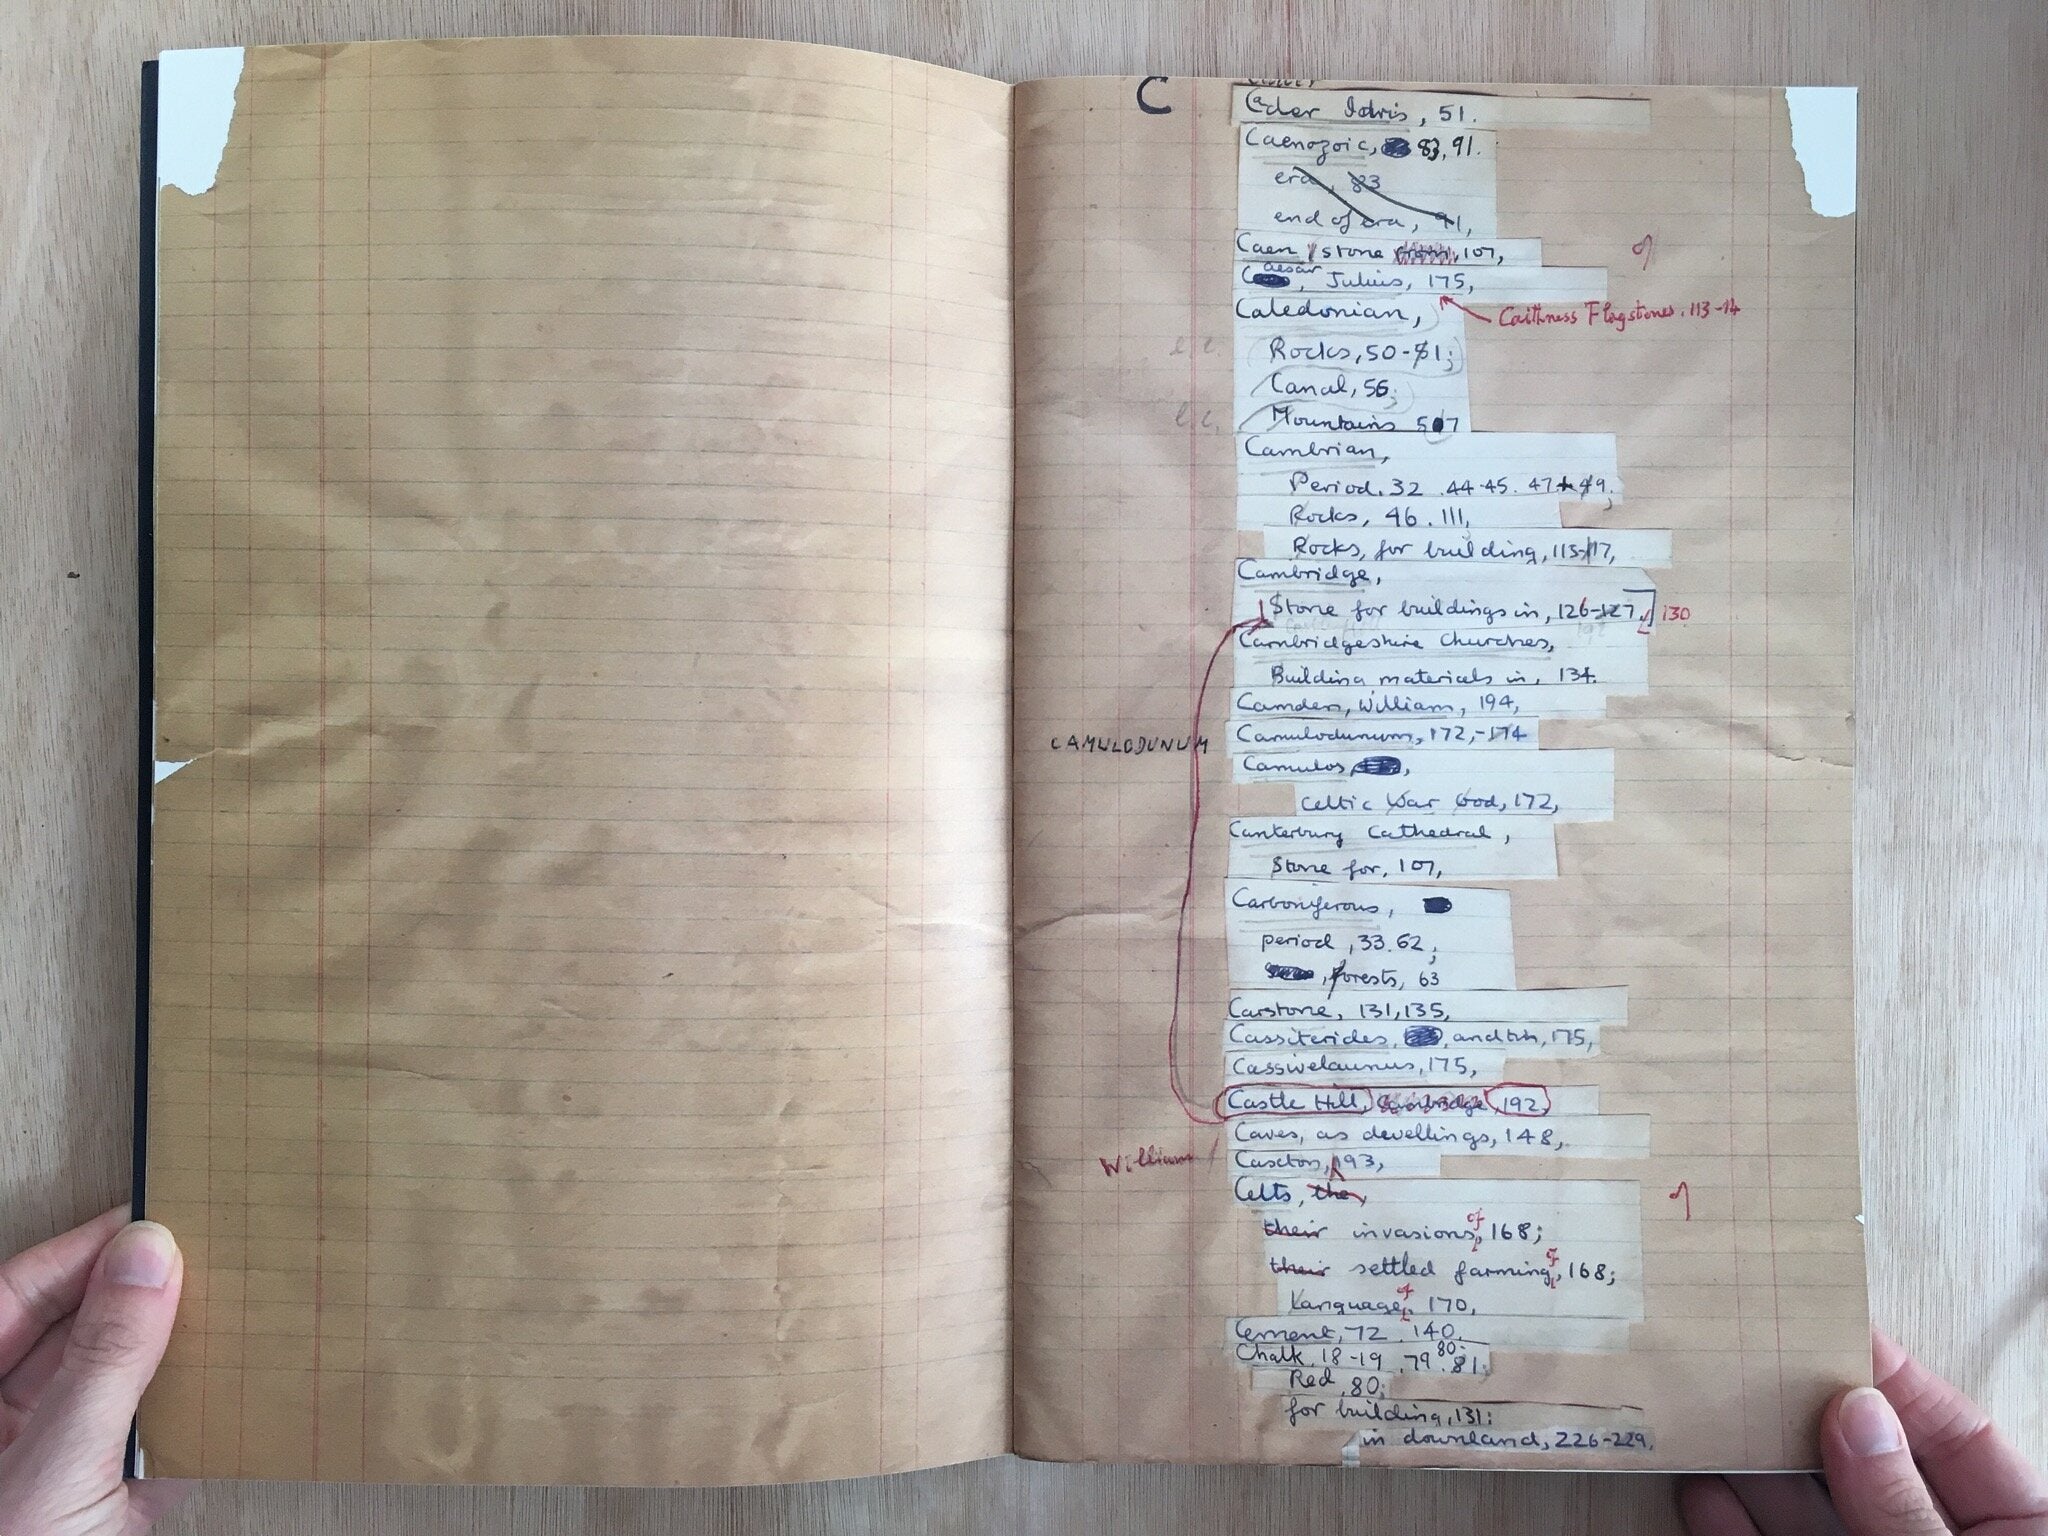 C
Cader Idris, 51.
Caenozoic, 83, 91.
era, 83
end of era, 91,
Caen stone from, 107,
Caesar, Julius, 175,
Caithness Flagstones, 113-14
Caledonian,
l.c. Rocks, 50-51;
Canal, 56;
l.c. Mountains 57
Cambrian,
Period, 32. 44-45. 47+49;
Rocks, 46. 111,
Rocks, for building, 115-117,
Cambridge,
Stone for buildings in, 126-127, 130
Cambridgeshire Churches,
Building materials in, 134.
Camden, William, 194,
CAMULODUNUM
Camulodunum, 172,-174
Camulos,
Celtic War God, 172,
Canterbury Cathedral,
Stone for, 107,
Carboniferous,
period, 33. 62;
, forests, 63
Carstone, 131, 135,
Cassiterides, and tin, 175,
Cassivelaunus, 175,
Castle Hill, Cambridge, 192,
Caves, as dwellings, 148,
William
Caxton, 193,
Celts, the,
their invasions of, 168;
their settled farming of, 168;
Language of, 170,
Cement, 72. 140.
Chalk, 18-19. 79. 80. 81;
Red, 80;
for building, 131;
in downland, 226-229,